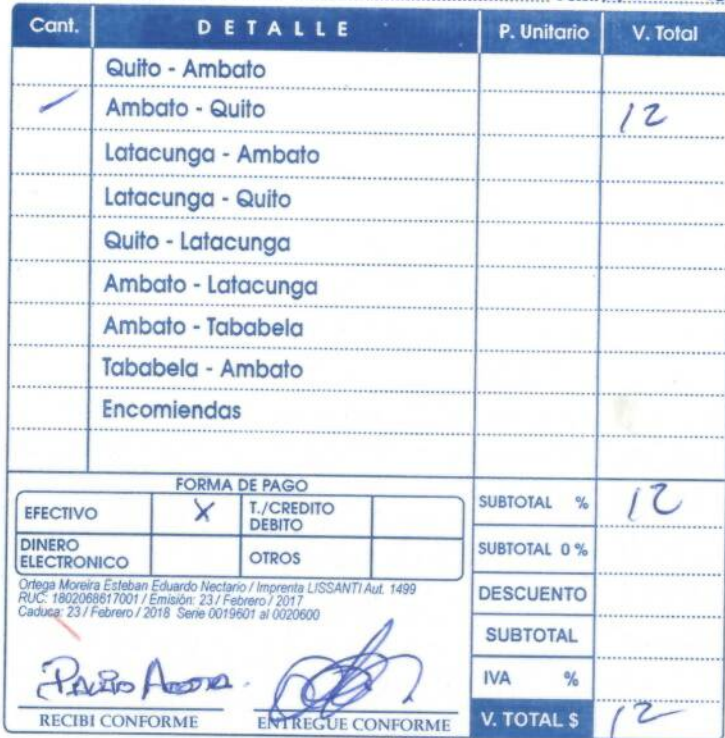 Cant. DETALLE P. Unitario V. Total
Quito - Ambato
Ambato - Quito 12
Latacunga - Ambato
Latacunga - Quito
Quito - Latacunga
Ambato - Latacunga
Ambato - Tababela
Tababela - Ambato
Encomiendas
FORMA DE PAGO
EFECTIVO X T./CREDITO DEBITO
DINERO ELECTRONICO OTROS
Ortega Moreira Esteban Eduardo Nectario / Imprenta LISSANTI Aut. 1499
RUC: 1802068617001 / Emisión: 23 / Febrero / 2017
Caduca: 23 / Febrero / 2018 Serie 0019601 al 0020600
RECIBI CONFORME ENTREGUE CONFORME
SUBTOTAL % 12
SUBTOTAL 0 %
DESCUENTO
SUBTOTAL
IVA %
V. TOTAL $ 12